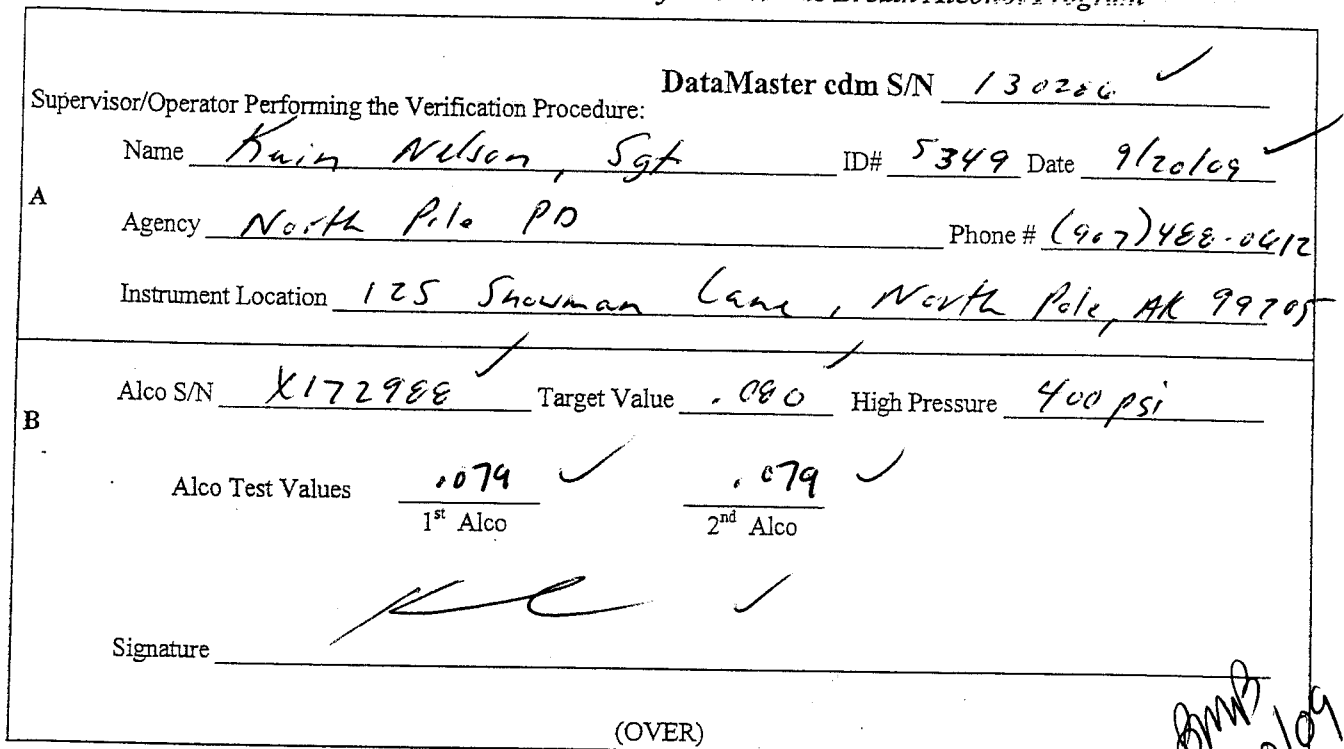 Breath Alcohol Program
DataMaster cdm S/N 130286
Supervisor/Operator Performing the Verification Procedure:
Name Kain Nelson, Sgt ID# 5349 Date 9/20/09
A
Agency North Pole PD Phone # (907)488-0612
Instrument Location 125 Snowman Lane, North Pole, AK 99705
Alco S/N X172988 Target Value .080 High Pressure 400 psi
B
Alco Test Values .079 .079
1st Alco 2nd Alco
Signature
(OVER)
BMB